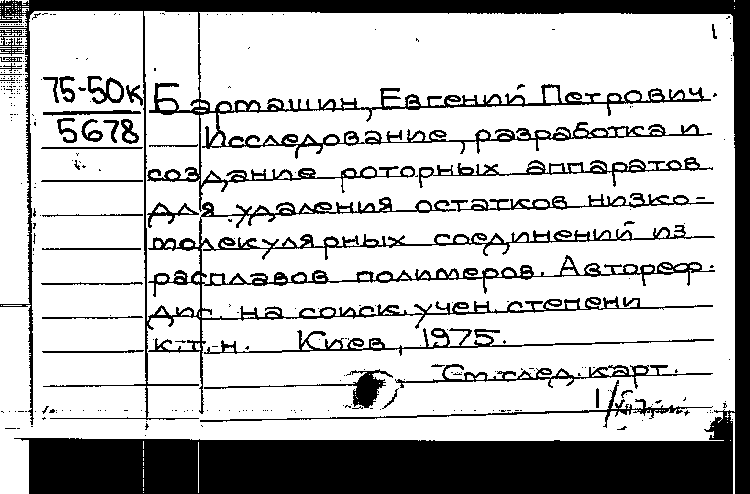 1
75-50к
5678
Барташин, Евгений Петрович.
Исследование, разработка и
создание роторных аппаратов
для удаления остатков низко=
молекулярных соединений из
расплавов полимеров. Автореф.
дис. на соиск. учен. степени
к.т.н. Киев, 1975.
См. след. карт.